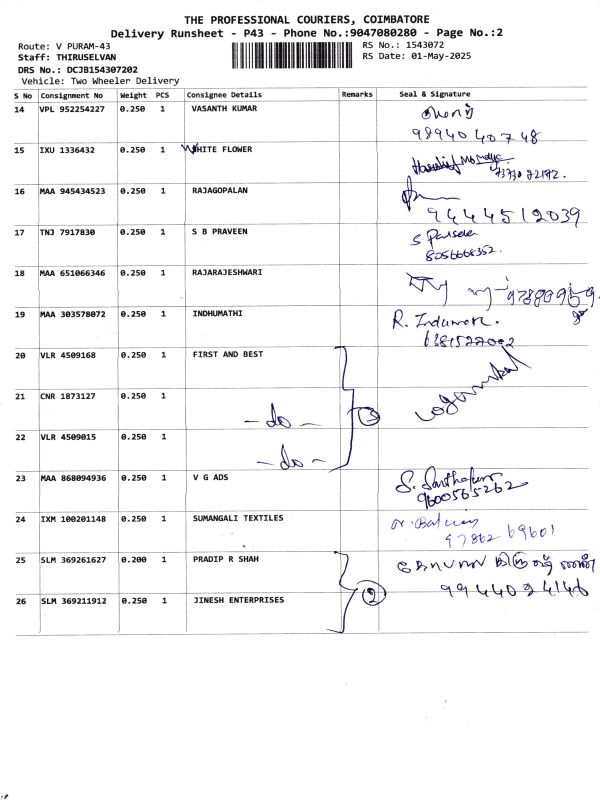 THE PROFESSIONAL COURIERS, COIMBATORE
Delivery Runsheet - P43 - Phone No.:9047080280 - Page No.:2
Route: V PURAM-43
RS No.: 1543072
Staff: THIRUSELVAN
RS Date: 01-May-2025
DRS No.: DCJB154307202
Vehicle: Two Wheeler Delivery
S No Consignment No Weight PCS Consignee Details Remarks Seal & Signature
14 VPL 952254227 0.250 1 VASANTH KUMAR
98940 40748
15 IXU 1336432 0.250 1 WHITE FLOWER
16 MAA 945434523 0.250 1 RAJAGOPALAN
9444512039
17 TNJ 7917830 0.250 1 S B PRAVEEN
8056668352.
18 MAA 651066346 0.250 1 RAJARAJESHWARI
19 MAA 303578072 0.250 1 INDHUMATHI
R.
20 VLR 4509168 0.250 1 FIRST AND BEST
21 CNR 1873127 0.250 1
- do -
3
22 VLR 4509015 0.250 1
- do -
23 MAA 868094936 0.250 1 V G ADS
9600565262
24 IXM 100201148 0.250 1 SUMANGALI TEXTILES
97862 69601
25 SLM 369261627 0.200 1 PRADIP R SHAH
26 SLM 369211912 0.250 1 JINESH ENTERPRISES
2
9944024146